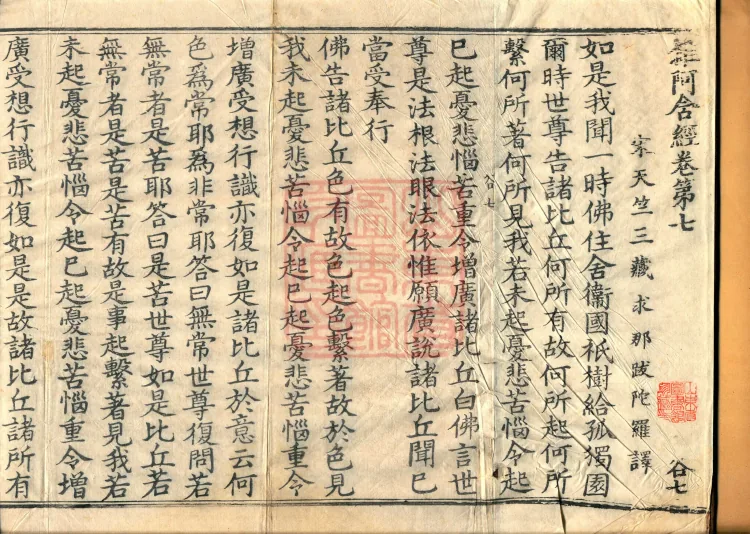 雜阿含經卷第七
宋天竺三藏求那跋陀羅譯
谷七
如是我聞一時佛住舍衞國祇樹給孤獨園
爾時世尊告諸比丘何所有故何所起何所
繫何所著何所見我若未起憂悲苦惱令起
谷七
已起憂悲惱苦重令增廣諸比丘白佛言世
尊是法根法眼法依惟願廣說諸比丘聞已
當受奉行
佛告諸比丘色有故色起色繫著故於色見
我未起憂悲苦惱令起已起憂悲苦惱重令
增廣受想行識亦復如是諸比丘於意云何
色為常耶為非常耶答曰無常世尊復問若
無常者是苦耶答曰是苦世尊如是比丘若
無常者是苦是苦有故是事起繫著見我若
未起憂悲苦惱令起已起憂悲苦惱重令增
廣受想行識亦復如是是故諸比丘諸所有